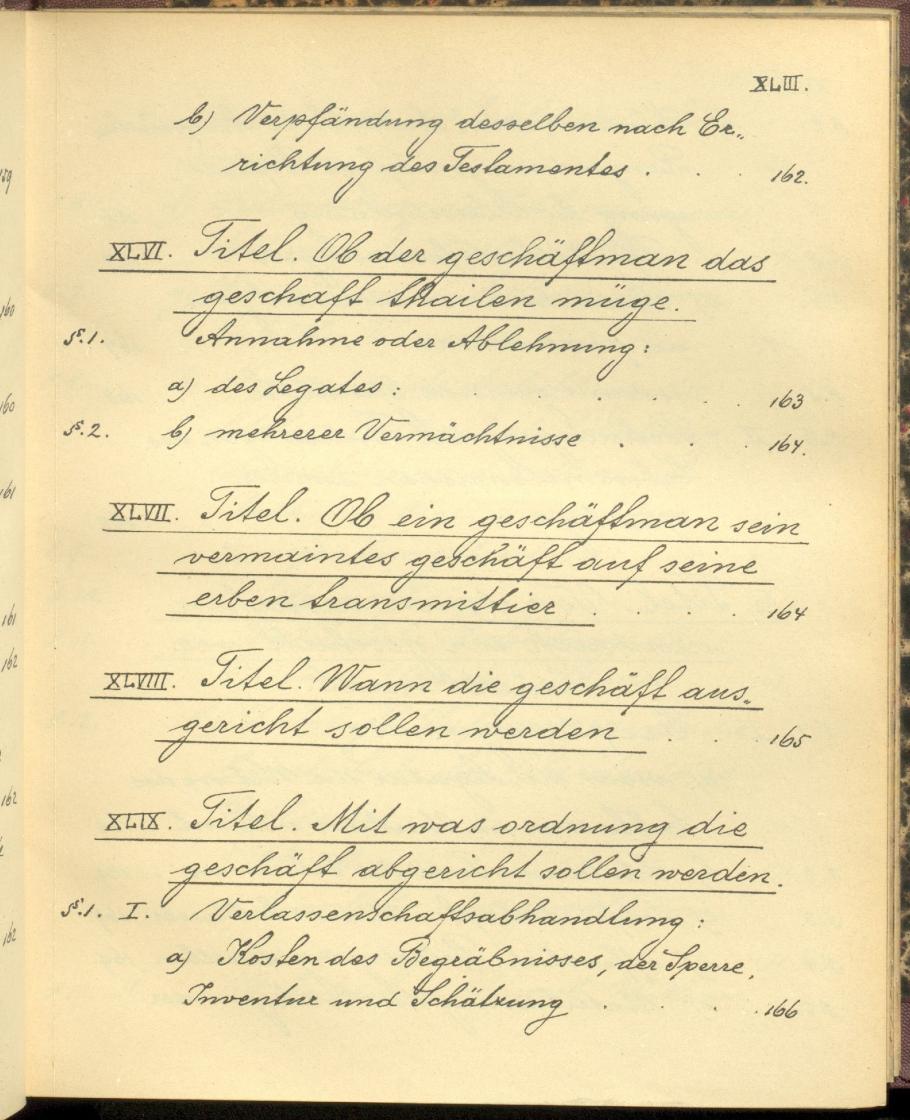 XLIII.
b) Verpfändung desselben nach Er„
richtung des Testamentes . . . 162.
XLVI. Titel. Ob der geschäftman das
geschaft thailen müge.
§.1. Annahme oder Ablehnung:
a) des Legates: . . . . 163
§.2. b) mehrerer Vermächtnisse . . . 164.
XLVII. Titel. Ob ein geschäftman sein
vermaintes geschäft auf seine
erben transmittier . 164
XLVIII. Titel. Wann die geschäft aus„
gericht sollen werden . . . 165
XLIX. Titel. Mit was ordnung die
geschäft abgericht sollen werden.
§.1. I. Verlassenschaftsabhandlung:
a) Kosten des Begräbnisses, der Sperre,
Inventur und Schätzung . . . 166
159
160
160
161
161
162
162
162